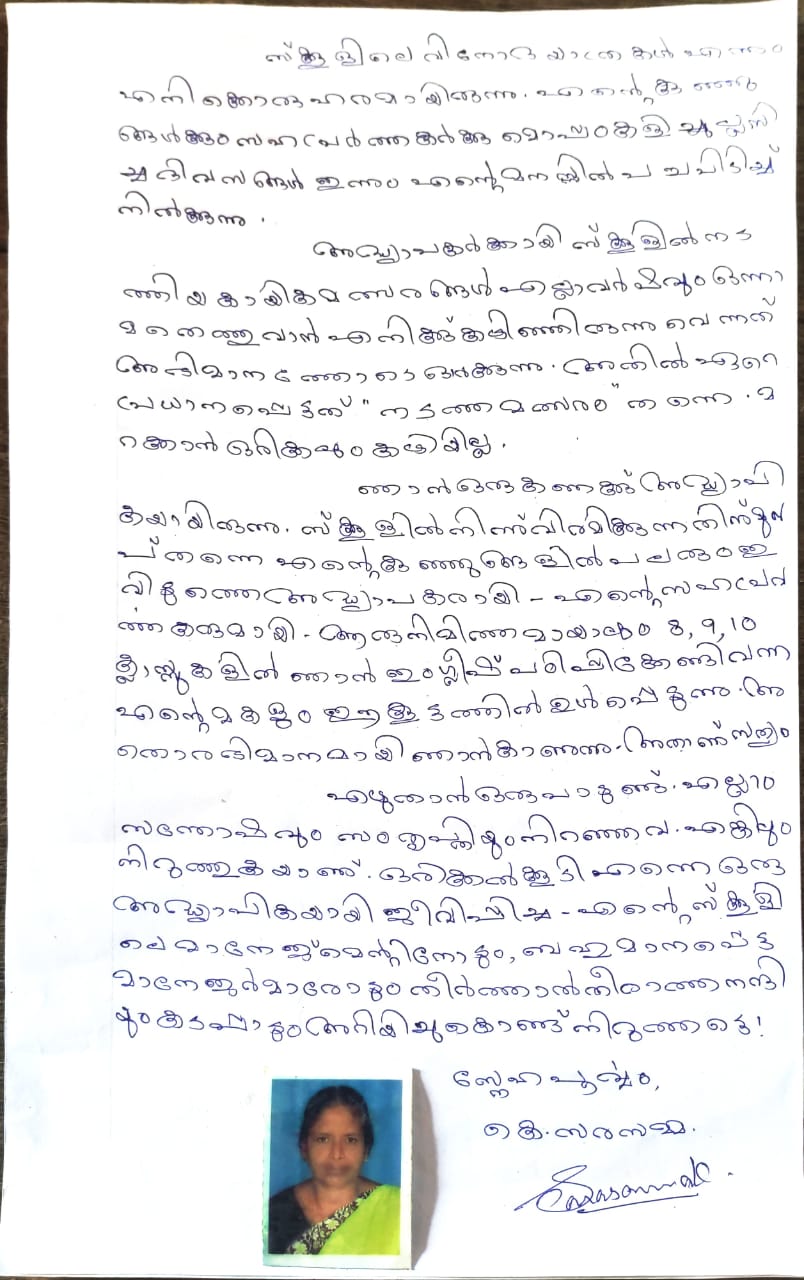 സ്കൂളിലെ വിനോദ യാത്രകൾ എന്നും
എനിക്കൊരു ഹരമായിരുന്നു. എന്റെ കുഞ്ഞു
ങ്ങൾക്കും സഹപ്രവർത്തകർക്കുമൊപ്പം കളിച്ചുല്ലസി
ച്ച ദിവസങ്ങൾ ഇന്നും എന്റെ മനസ്സിൽ പച്ചപിടിച്ച്
നിൽക്കുന്നു.
അദ്ധ്യാപകർക്കായി സ്കൂളിൽ നട
ത്തിയ കായികമത്സരങ്ങൾ എല്ലാവർഷവും ഒന്നാ
മതെത്തുവാൻ എനിക്ക് കഴിഞ്ഞിരുന്നുവെന്നത്
അഭിമാനത്തോടെ ഓർക്കുന്നു. അതിൽ ഏറെ
പ്രധാനപ്പെട്ടത് "നടത്തമത്സരം" തന്നെ. മ
റക്കാൻ ഒരിക്കലും കഴിയില്ല.
ഞാൻ ഒരു കണക്ക് അദ്ധ്യാപി
കയായിരുന്നു. സ്കൂളിൽ നിന്ന് വിരമിക്കുന്നതിന് മുൻ
പ് തന്നെ എന്റെ കുഞ്ഞുങ്ങളിൽ പലരും ഇ
വിടുത്തെ അദ്ധ്യാപകരായി - എന്റെ സഹപ്രവർ
ത്തകരുമായി - ആ ഒരു നിമിത്തമായാലും 8, 9, 10
ക്ലാസ്സുകളിൽ ഞാൻ ഇംഗ്ലീഷ് പഠിപ്പിക്കേണ്ടി വന്ന
എന്റെ മകളും ഈ കൂട്ടത്തിൽ ഉൾപ്പെടുന്നു. അ
തൊരഭിമാനമായി ഞാൻ കാണുന്നു. അതാണ് സത്യം
എഴുതാൻ ഒരുപാടുണ്ട്. എല്ലാം
സന്തോഷവും സംതൃപ്തിയും നിറഞ്ഞവ. എങ്കിലും
നിറുത്തുകയാണ്. ഒരിക്കൽ കൂടി എന്നെ ഒരു
അദ്ധ്യാപികയായി ജീവിപ്പിച്ച - എന്റെ സ്കൂളി
ലെ മാനേജ്മെന്റിനോടും, ബഹുമാനപ്പെട്ട
മാനേജർമാരോടും തീർത്താൽ തീരാത്ത നന്ദി
യും കടപ്പാടും അറിയിച്ചുകൊണ്ട് നിറുത്തട്ടെ!
സ്നേഹപൂർവ്വം,
കെ. സരസമ്മ.
Sarasamma K